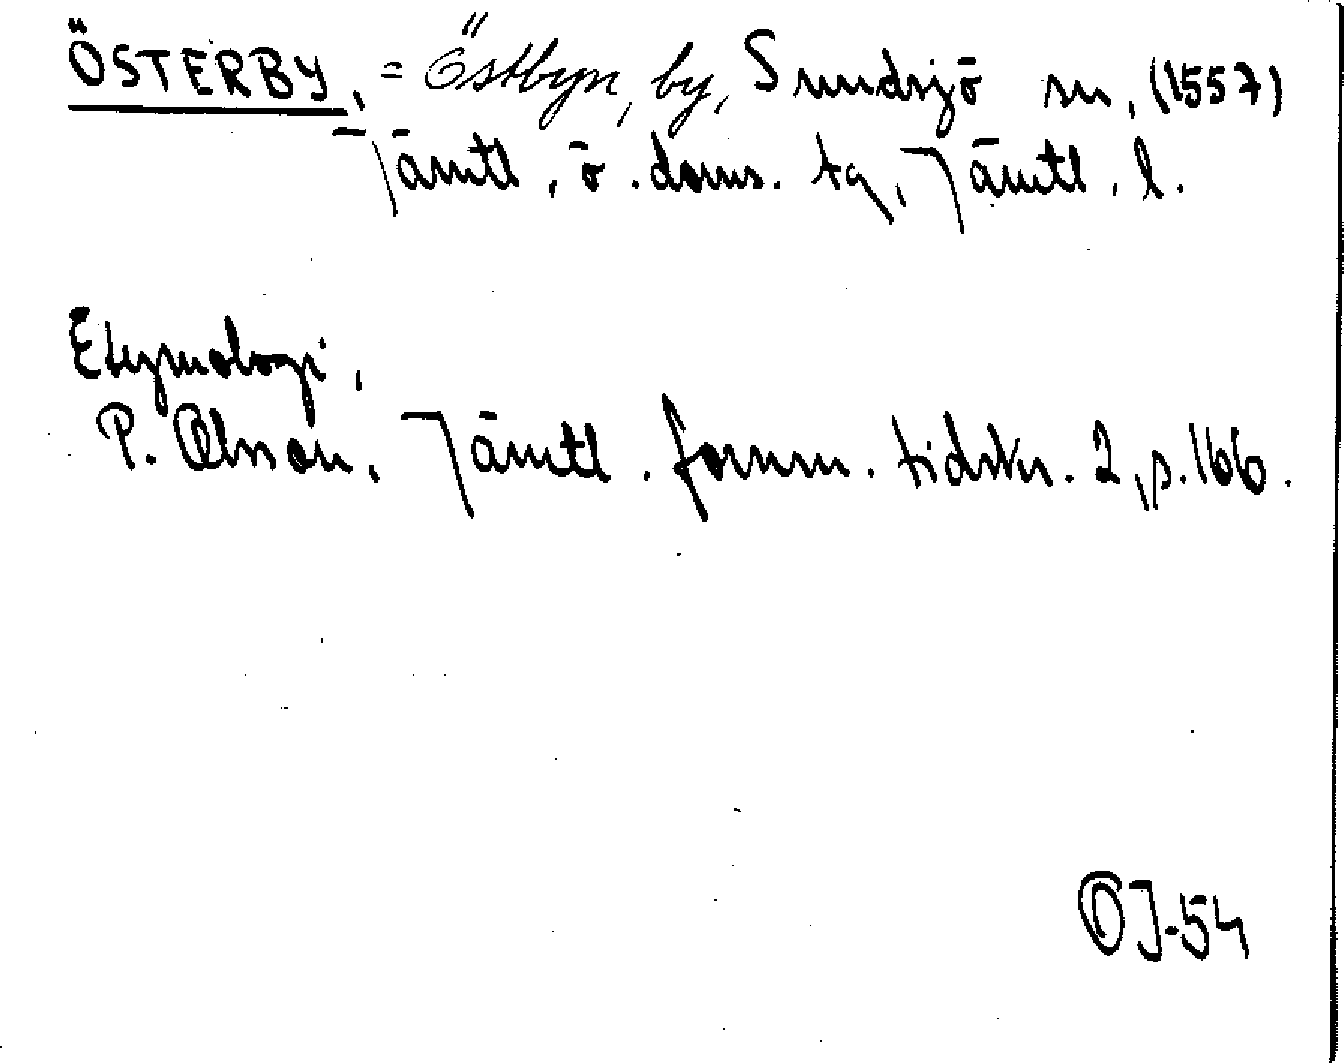 ÖSTERBY, = Östbyn, by, Sundsjö sn, (1557)
Jämtl. ö. doms. tg, Jämtl. l.
Etymologi,
P. Olsson, Jämtl. fornm. tidskr. 2, p. 166.
OJ-54